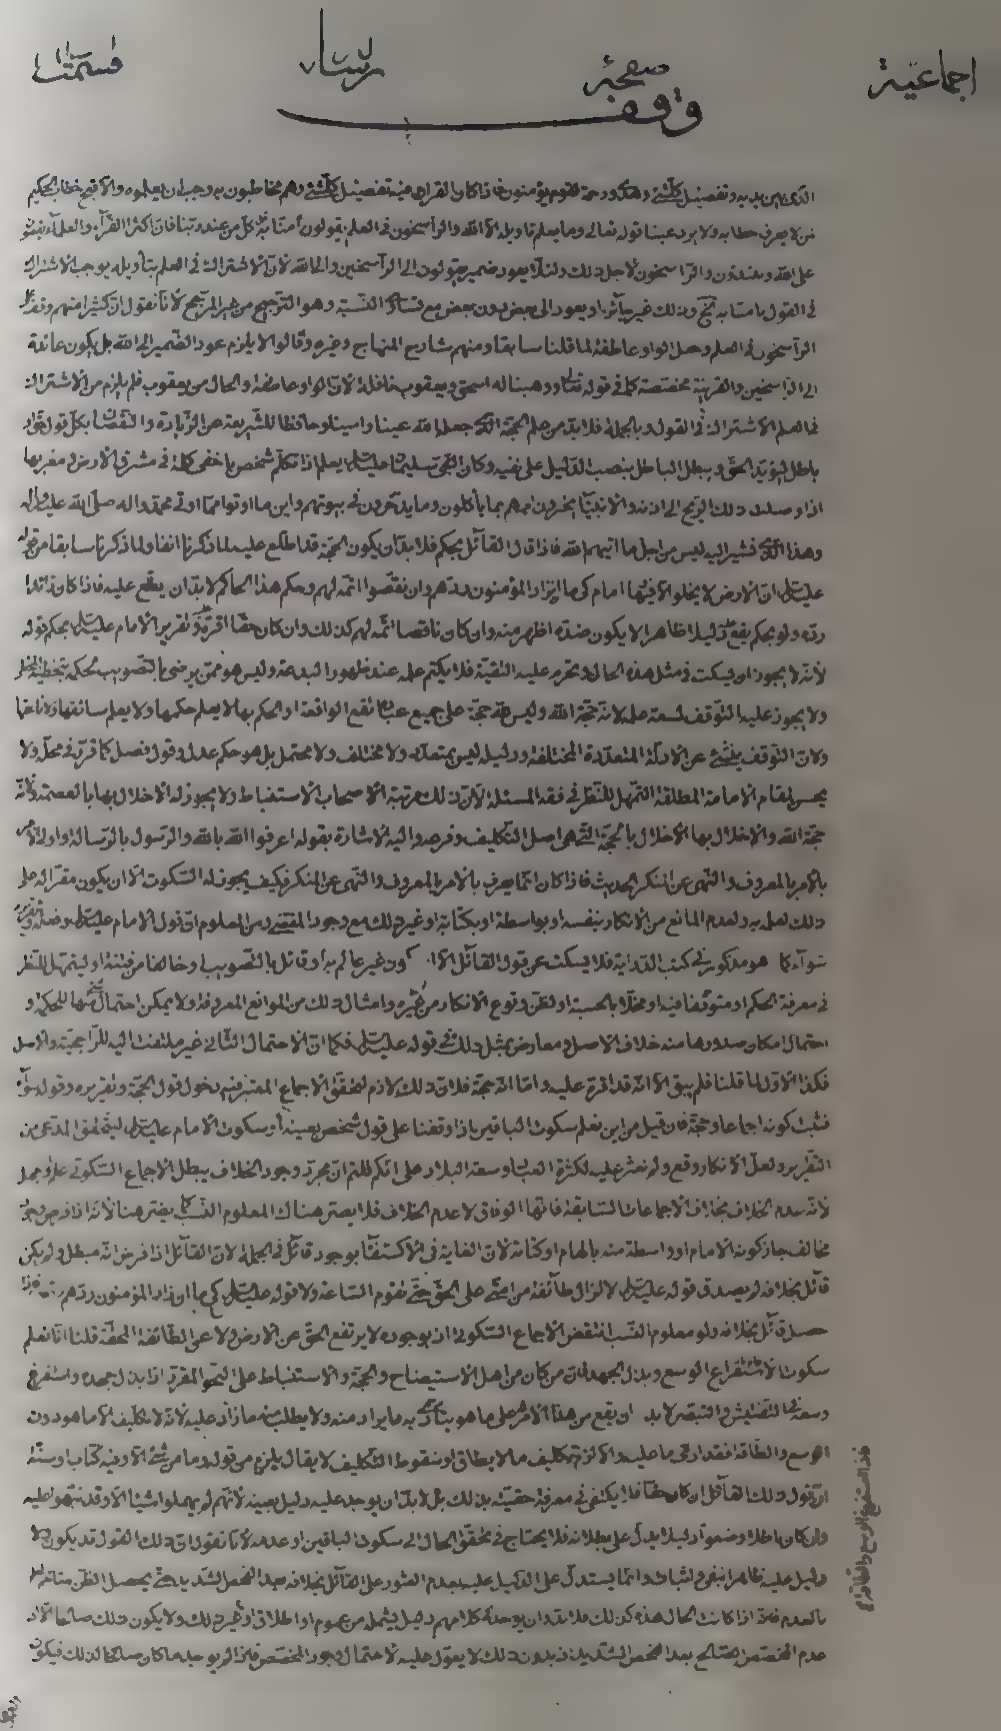 اجماعية صفحة رسالة قسمت
وقف
الذى بين يديه وتفصيل كلشئ وهدى ورحمة لقوم يؤمنون فاذا كان القران فيه تفصيل كلشئ وهم مخاطبون به وجب ان يعلموه والا قبح خطاب الحكيم
من لا يعرف خطابه ولا يرد علينا قوله تعالى وما يعلم تاويله الا الله والراسخون فى العلم يقولون امنا به كل من عند ربنا فان اكثر القراء والعلماء يقفون
على الله ويبتدئون والراسخون لاجل ذلك ولئلا يعود ضمير يقولون الى الراسخين والى الله لان الاشتراك فى العلم بتأويله يوجب الاشتراك
فى القول بامنا به وذلك غير جائز او يعود الى بعض دون بعض مع تساوى النسبة وهو الترجيح من غير المرجح لانا نقول ان كثيرا منهم وقف على
الراسخون فى العلم وجعل الواو عاطفة لما قلنا سابقا ومنهم شارح المنهاج وغيره وقالوا لا يلزم عود الضمير الى الله بل يكون عائدا
الى الراسخين والقرينة مخصصة كما فى قوله تعالى ووهبنا له اسحق ويعقوب نافلة لان الواو عاطفة والحال من يعقوب فلم يلزم من الاشتراك
فى العلم الاشتراك فى القول وبالجملة فلا بد من علم الحجة الذى جعله الله عينا وامينا وحافظا للشريعة عن الزيادة والنقصان بكل قول حق او
باطل ليؤيد الحق ويبطل الباطل بنصب الدليل على نفيه وكان النبى سليمان عليه السلام يعلم اذا تكلم شخص باخفى كلمة فى مشرق الارض او مغربها
اذا وصلت ذلك الريح الى اذنه والانبياء يخبرون اممهم بما ياكلون وما يدخرون فى بيوتهم واين ما اوتوا مما اوتى محمد واله صلى الله عليه واله
وهذا الذى نشير اليه ليس من اجل ما اتيهم الله فاذا قال القائل بحكم فلا بد ان يكون الحجة قد اطلع عليه لما ذكرنا انفا ولما ذكرنا سابقا من قوله
عليه السلام ان الارض لا يخلو الا وفيها امام كى ما ان زاد المؤمنون ردهم وان نقصوا اتمه لهم وحكم هذا الحاكم لا بد ان يقع عليه فاذا كان زائدا
رده ولو بحكم يقع دليلا ظاهرا لا يكون ضده اظهر منه وان كان ناقصا اتمه لهم كذلك وان كان حقا اقره وتقرير الامام عليه السلام بحكم قوله
لانه لا يجوز ان يسكت فى مثل هذه الحال ويحرم عليه التقية فلا يكتم علمه عند ظهور البدعة وليس هو ممن يرضى بالتصويب لحكمه بتخطئة المخطى
ولا يجوز عليه التوقف لسعة علمه لانه حجة الله وليس لله حجة على جميع عباده تقع الواقعة او الحكم بها لا يعلم حكمها ولا يعلم سائقها ولا ناعقها
ولان التوقف ينشئ عن الادلة المتعددة المختلفة ودليله ليس بمتعدد ولا مختلف ولا محتمل بل هو حكم عدل وقول فصل كما قرر فى محله ولا
يحسن لمقام الامامة المطلقة التمهل للنظر فى فقه المسئلة لان ذلك مرتبة الاصحاب الاستنباط ولا يجوز له الاخلال بها بالعصمة ولانه
حجة الله والاخلال بها الاخلال بالحجة التى هى اصل التكليف وفرعه واليه الاشارة بقوله اعرفوا الله بالله والرسول بالرسالة واولى الامر
بالامر بالمعروف والنهى عن المنكر الحديث فاذا كان انما يعرف بالامر بالمعروف والنهى عن المنكر فكيف يجوز له السكوت الا ان يكون مقرا له على
ذلك لعلمه به ولعدم المانع من الانكار بنفسه او بواسطة او بكتابة او غير ذلك مع وجود المقتضى ومن المعلوم ان قول الامام عليه السلام وفعله وتقريره
سواء كما هو مذكور فى كتب الدراية فلا يسكت عن قول القائل الا ان يكون غير عالم به او قائل بالتصويب او خائفا من فتنة او ليتمهل للنظر
فى معرفة الحكم او متوقفا فيه او مخلا بالحسبة او لظن وقوع الانكار من غيره وامثال ذلك من الموانع المعروفة ولا يمكن احتمال شئ منها للحكمة و
احتمال امكان صدورها منه خلاف الاصل ومعارض بمثل ذلك فى قوله عليه السلام فكما ان الاحتمال الثانى غير ملتفت اليه للراجحية والاصل
فكذا الاول لما قلنا فلم يبق الا انه قد اقره عليه واما انه حجة فلان ذلك لازم لتحقق الاجماع المعتبر فيه دخول قول الحجة وتقريره وقوله سواء
فثبت كونه اجماعا وحجة فان قيل من اين نعلم سكوت الباقين اذا وقفنا على قول شخص بعينه او سكوت الامام عليه السلام ليتحقق المدعى من
التقرير ولعل الانكار وقع ولم نعثر عليه لكثرة العباد وسعة البلاد على انكم قلتم ان مجرد وجود الخلاف يبطل الاجماع السكوتى علم او جهل
لانه عدم الخلاف بخلاف الاجماعات السابقة فانها الوفاق لا عدم الخلاف فلا يضر هناك المعلوم النسب كما يضر هنا لانه اذا فرض وجود
مخالف جاز كونه الامام او واسطة منه بالهام او كتابة لان الغاية فى الاكتفاء بوجود قائل فى الجملة لان القائل اذا فرض انه مبطل ولم يكن
قائل بخلافه لم يصدق قوله عليه السلام لا تزال طائفة من امتى على الحق حتى تقوم الساعة ولا قوله عليه السلام كى ما ان زاد المؤمنون ردهم فاذا
حصل قائل بخلافه ولو معلوم النسب انتقض الاجماع السكوتى اذ بوجوده لا يرتفع الحق عن الارض ولا عن الطائفة المحقة قلنا انا نعلم
سكوت الامام باستفراغ الوسع وبذل الجهد لان من كان من اهل الاستيضاح والحجة والاستنباط على النحو المقرر اذا بذل جهده واستفرغ
وسعه فى التفتيش والتبصر لا بد ان يقع من هذا الامر على ما هو يتأدى به ما يراد منه ولا يطلب منه ما زاد عليه لانه لا تكليف الا ما هو دون
الوسع والطاقة فقد ادى ما عليه والا لزم تكليف ما لا يطاق او سقوط التكليف لا يقال يلزم من قوله وما من شئ الا وفيه كتاب او سنة
ان قول ذلك القائل ان كان حقا فلا يكتفى فى معرفة حقيته بذلك بل لا بد ان يوجد عليه دليل بعينه لانهم لم يهملوا شيئا الا وقد نبهوا عليه
وان كان باطلا وضعوا دليلا يدل على بطلانه فلا يحتاج فى تحقق الحال الى سكوت الباقين او عدمه لانا نقول ان ذلك القول قد يكون ولا
دليل عليه ظاهرا بنفى ولا اثبات وانما يستدل على الدليل عليه بعدم العثور على القائل بخلافه بعد الفحص الشديد حتى يحصل الظن متاخم
بالعدم فاذا كانت الحال هذه كذلك فلا بد وان يوجد فى كلامهم دليل يشمله من عموم او اطلاق او غير ذلك ولا يكون ذلك صالحا الا اذا
عدم المخصص الصالح بعد الفحص الشديد اذ بدون ذلك لا يعول عليه لاحتمال وجود المخصص فاذا لم يوجد ما كان صالحا لذلك فيكون
هذا المستفرغ الوسع والطاقة